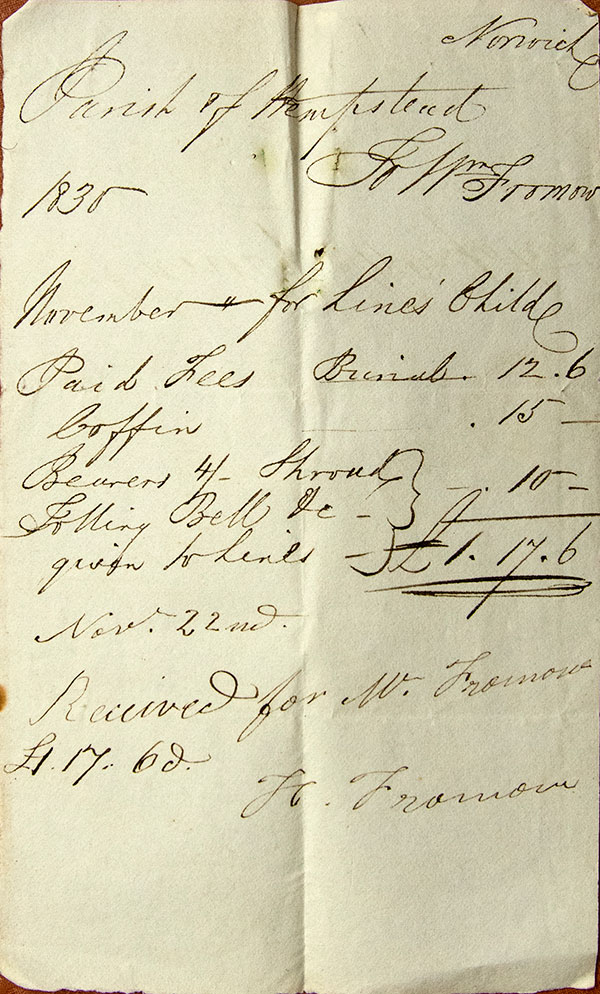 Norwich
Parish of Hempstead
To Wm Fromow
1830
November - " for Lines' Child
Paid Fees Burial . 12.6
Coffin . 15 -
Bearers 4/- Shroud } - . 10 -
Tolling Bell &c -
given to Lines - } £1. 17. 6
Novr. 22nd.
Received for Mr. Fromow
£1. 17. 6d.
H. Fromow